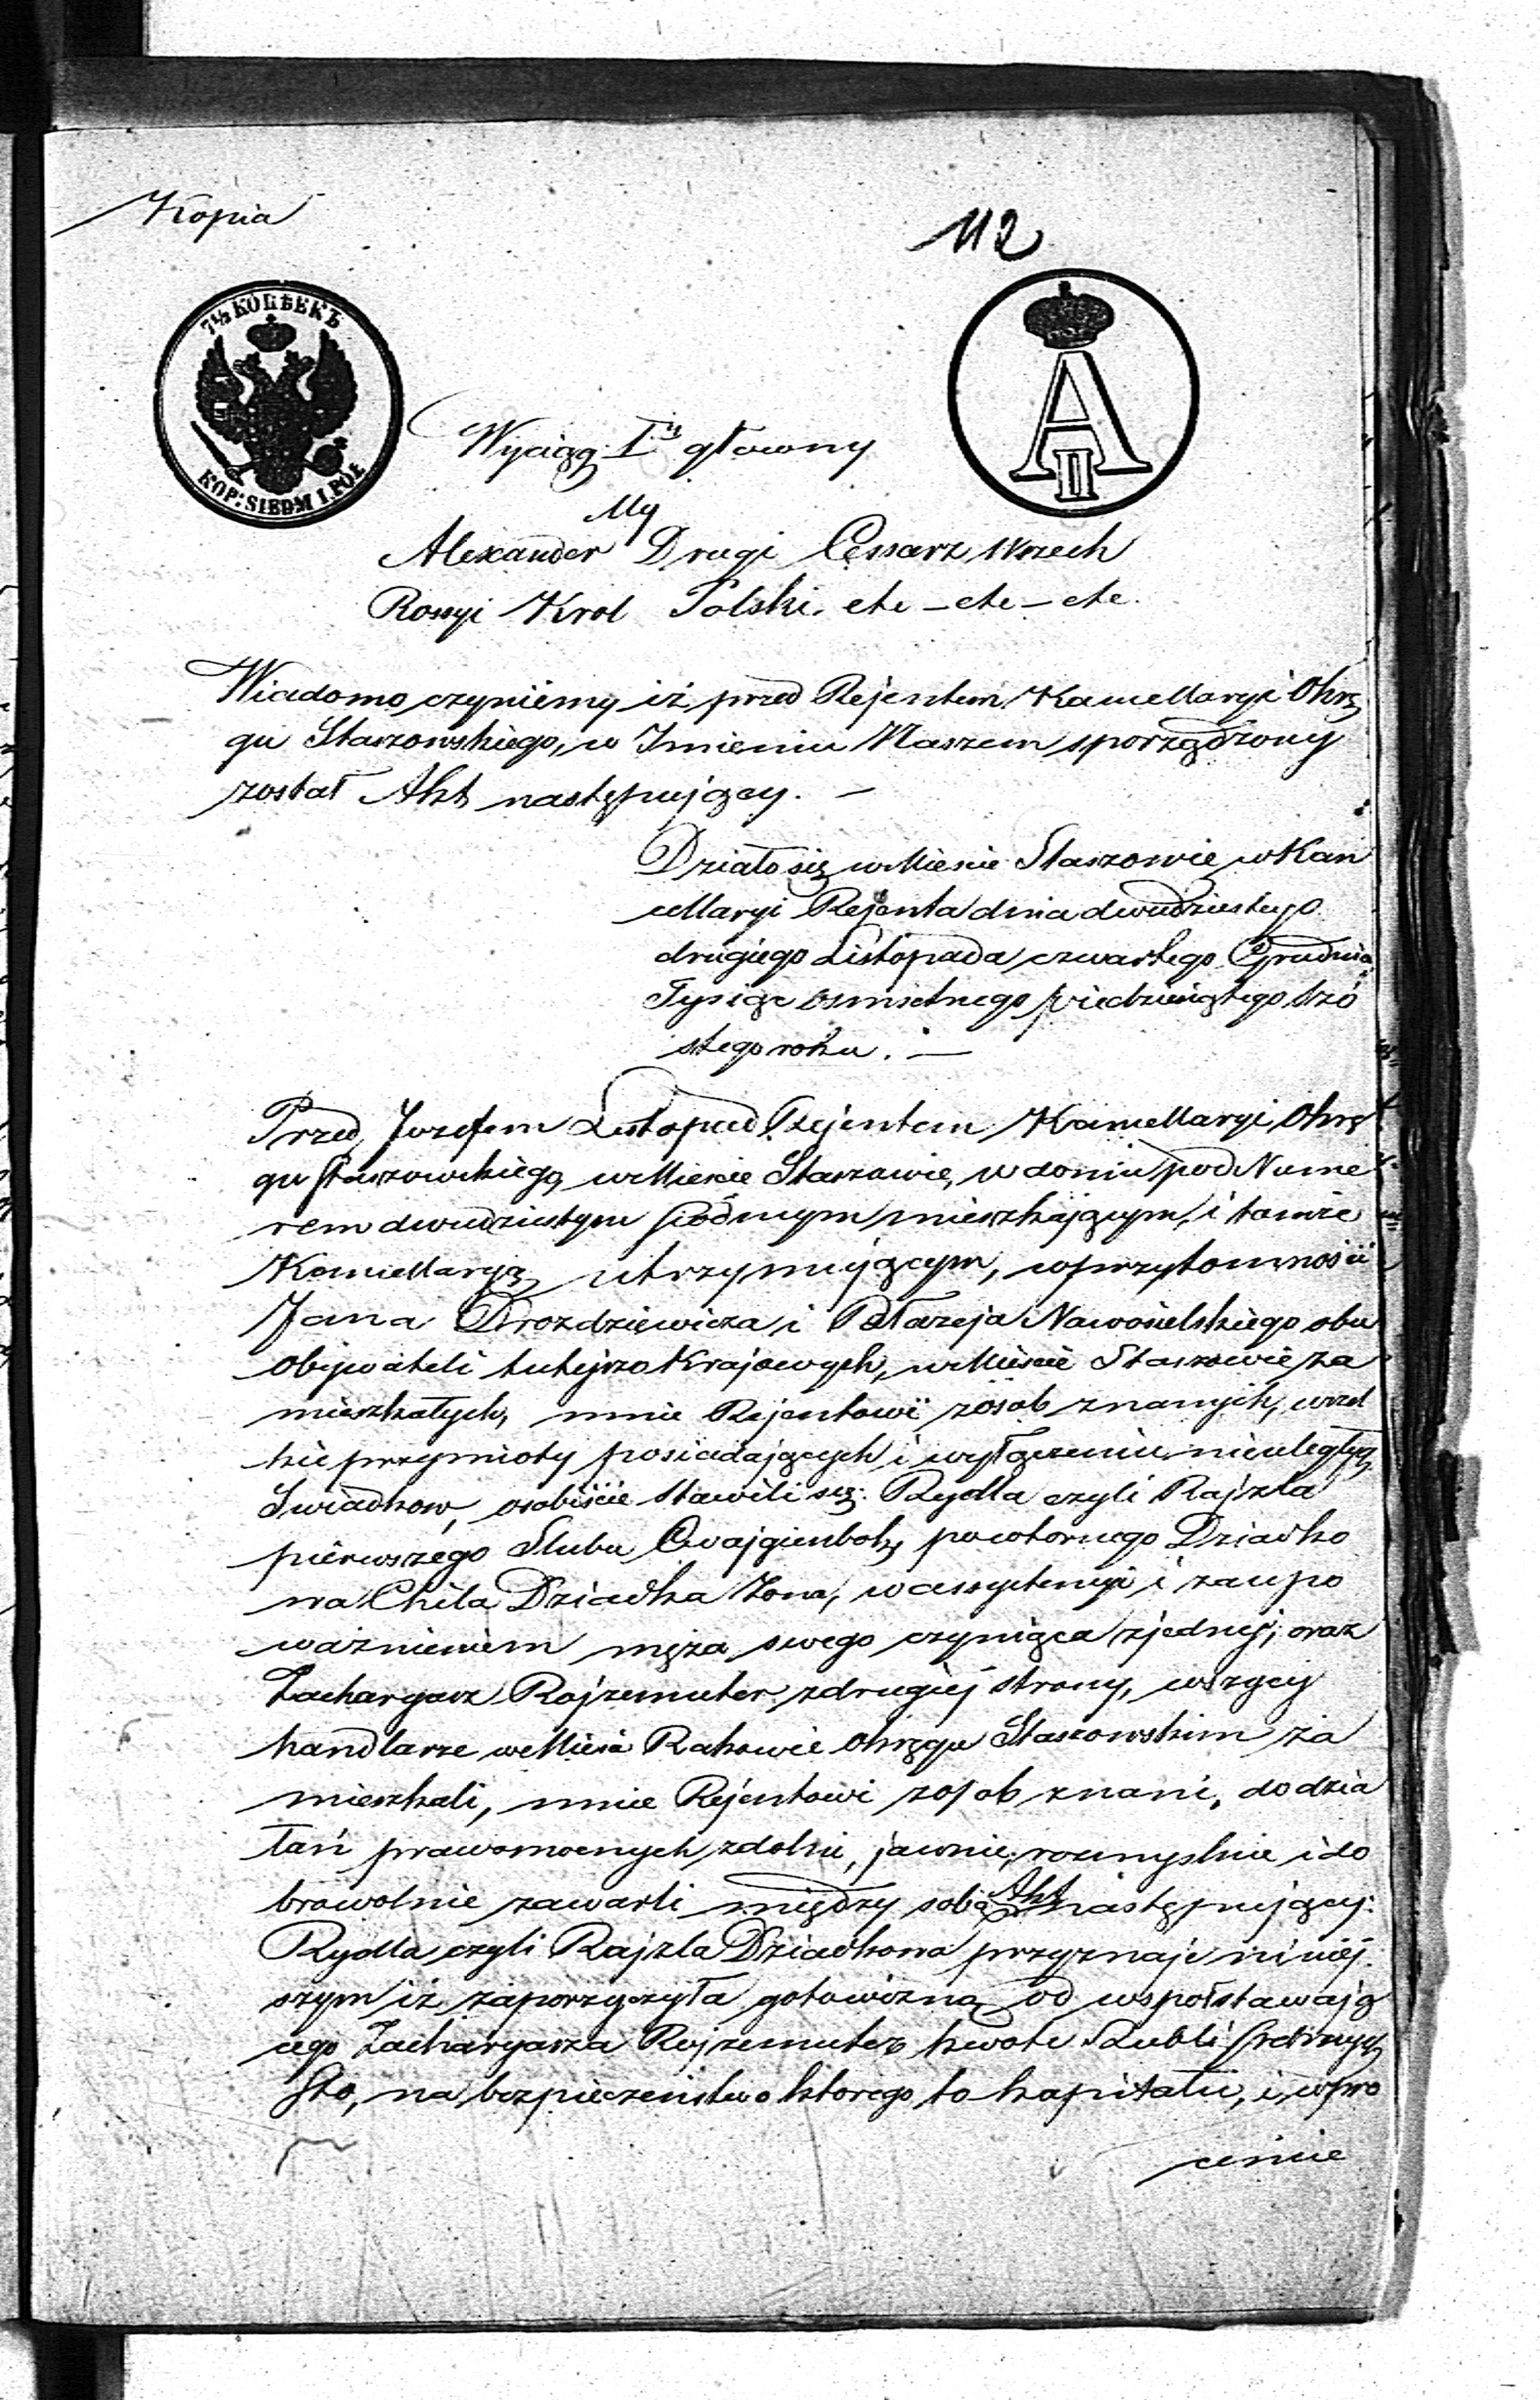 Kopia
112
7½ КОПѢЕКЪ
КОР: SIEDM I PÓŁ
A II
Wyciąg Iszy główny
My
Alexander Drugi Cessarz Wszech
Rossyi Krol Polski. etc – etc – etc.
Wiadomo czyniemy iż przed Rejentem Kancellaryi Okrę
gu Staszowskiego, w Imieniu Naszem sporządzony
został Akt następujący. —
Działo się w Mieście Staszowie w Kan
cellaryi Rejenta dnia dwudziestego
drugiego Listopada czwartego Grudnia
Tysiąc osmsetnego pięćdziesiątego szó
stego roku. —
Przed Jozefem Listopad Rejentem Kancellaryi Okrę
gu Staszowskiego w Mieście Staszowie, w domu pod Nume
rem dwudziestym siódmym mieszkającym, i tamże
Kancellaryą utrzymującym, w przytomności
Jana Drozdziewicza i Błażeja Nawosielskiego obu
obywateli tutejszo Krajowych, w Mieście Staszowie za
mieszkałych, mnie Rejentowi z osob znanych, wszel
kie przymioty posiadających i wyłączeniu nieuległych
Swiadkow, osobiście stawili się: Rydla czyli Rajzla
pierwszego Slubu Cwajgienbok, powtornego Dziadko
wa Chila Dziadka Zona, w assystencyi i za upo
ważnieniem męża swego czyniąca z jednej, oraz
Zacharyasz Rojzemuter z drugiej strony, wszyscy
handlarze w Mieście Rakowie Okręgu Staszowskim za
mieszkali, mnie Rejentowi z osob znani, do dzia
łań prawomocnych zdolni, jawnie, rozmyslnie i do
browolnie zawarli między sobą Akt następujący:
Rydla czyli Rajzla Dziadkowa przyznaje niniej
szym iż zaporzyczyła gotowizną od wspołstawają
cego Zacharyasza Rojzemuter kwotę Rubli srebrnych
Sto, na bezpieczeństwo ktorego to kapitału, i w pro
cencie